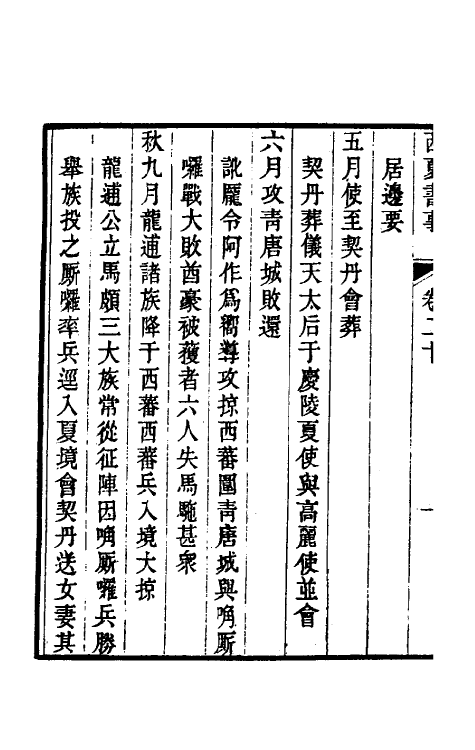 西夏書事 卷二十 一
居邊要
五月使至契丹會葬
契丹葬儀天太后于慶陵夏使與高麗使並會
六月攻青唐城敗還
訛龐令阿作爲嚮導攻掠西蕃圍青唐城與唃厮
囉戰大敗酋豪被獲者六人失馬駞甚衆
秋九月龍逋諸族降于西蕃西蕃兵入境大掠
龍逋公立馬頗三大族常從征陣因唃厮囉兵勝
舉族投之厮囉率兵逕入夏境會契丹送女妻其